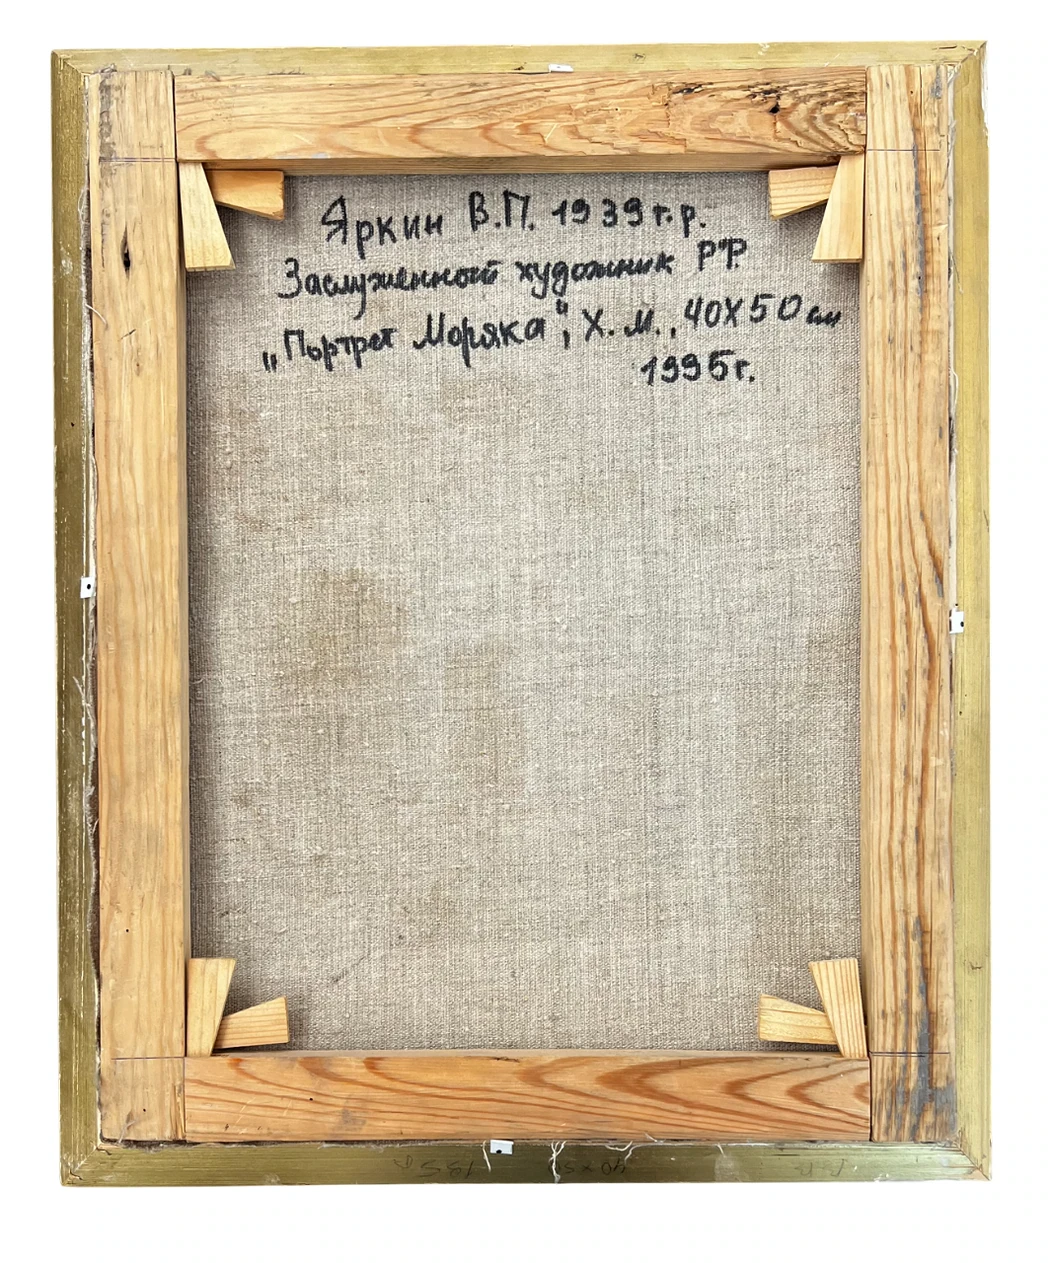 Яркин В.П. 1939 г.р.
Заслуженный художник РФ.
„Портрет Моряка", Х.М., 40Х50 см
1995г.
40x50